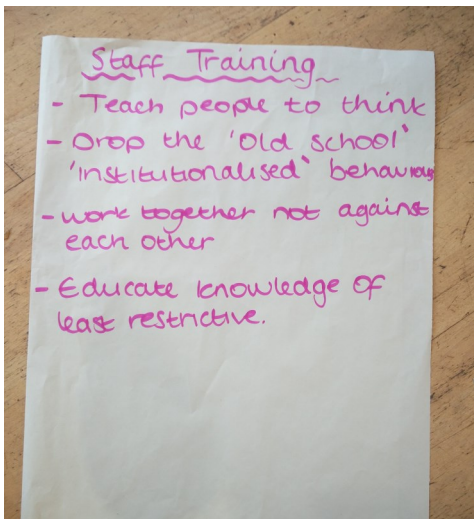 Staff Training
- Teach people to think
- Drop the 'Old school'
'institutionalised' behaviours
- work together not against
each other
- Educate knowledge of
least restrictive.